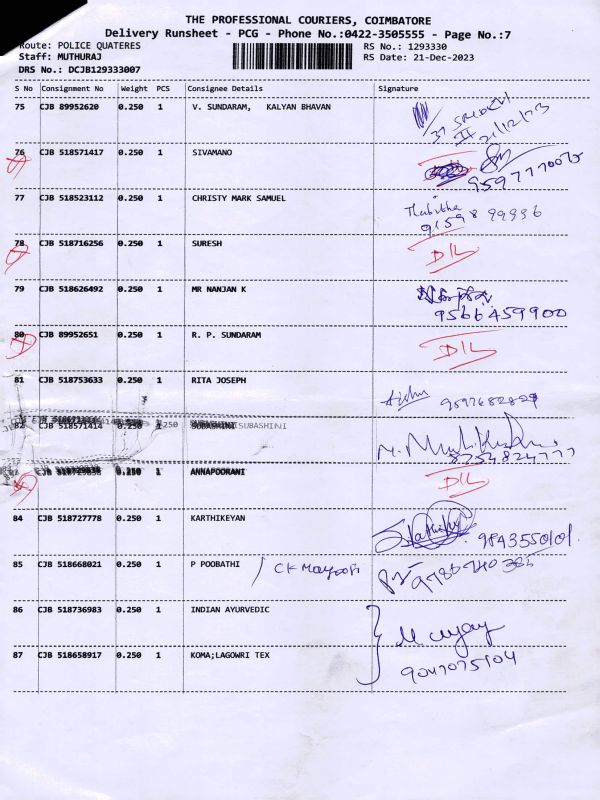 THE PROFESSIONAL COURIERS, COIMBATORE
Delivery Runsheet - PCG - Phone No.:0422-3505555 - Page No.:7
Route: POLICE QUATERES RS No.: 1293330
Staff: MUTHURAJ RS Date: 21-Dec-2023
DRS No.: DCJB129333007
S No Consignment No Weight PCS Consignee Details Signature
75 CJB 89952620 0.250 1 V. SUNDARAM, KALYAN BHAVAN
21/12/23
76 CJB 518571417 0.250 1 SIVAMANO
77 CJB 518523112 0.250 1 CHRISTY MARK SAMUEL Thabitha
91598 99936
78 CJB 518716256 0.250 1 SURESH D/L
79 CJB 518626492 0.250 1 MR NANJAN K
9566459900
80 CJB 89952651 0.250 1 R. P. SUNDARAM D/L
81 CJB 518753633 0.250 1 RITA JOSEPH
82 CJB 518571414 0.250 1 SUBASHINI
8754824777
ANNAPOORANI D/L
84 CJB 518727778 0.250 1 KARTHIKEYAN
9843550101
85 CJB 518668021 0.250 1 P POOBATHI / CK Mayoori
86 CJB 518736983 0.250 1 INDIAN AYURVEDIC
87 CJB 518658917 0.250 1 KOMA;LAGOWRI TEX
9047075104